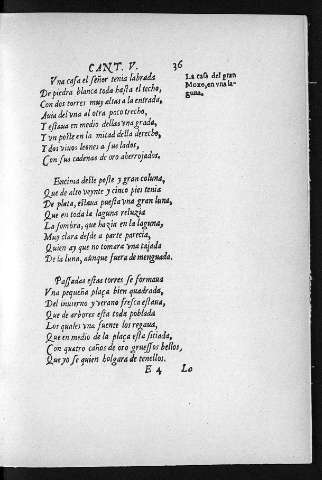 CANT. V. 36
Vna casa el señor tenia labrada
De piedra blanca toda hasta el techo,
Con dos torres muy altas a la entrada,
Auia del vna al otra poco trecho,
Y estaua en medio dellas vna grada,
Y vn poste en la mitad della derecho,
Y dos viuos leones a sus lados,
Con sus cadenas de oro aherrojados.
La casa del gran
Moxo, en vna la-
guna.
Encima deste poste y gran coluna,
Que de alto veynte y cinco pies tenia
De plata, estaua puesta vna gran luna,
Que en toda la laguna reluzia
La sombra, que hazia en la laguna,
Muy clara desde a parte parecia,
Quien ay que no tomara vna tajada
De la luna, aunque fuera de menguada.
Passadas estas torres se formaua
Vna pequeña plaça bien quadrada,
Del inuierno y verano fresca estaua,
Que de arboles esta toda poblada
Los quales vna fuente los regaua,
Que en medio de la plaça esta sitiada,
Con quatro caños de oro gruessos bellos,
Que yo se quien holgara de tenellos.
E 4 Lo